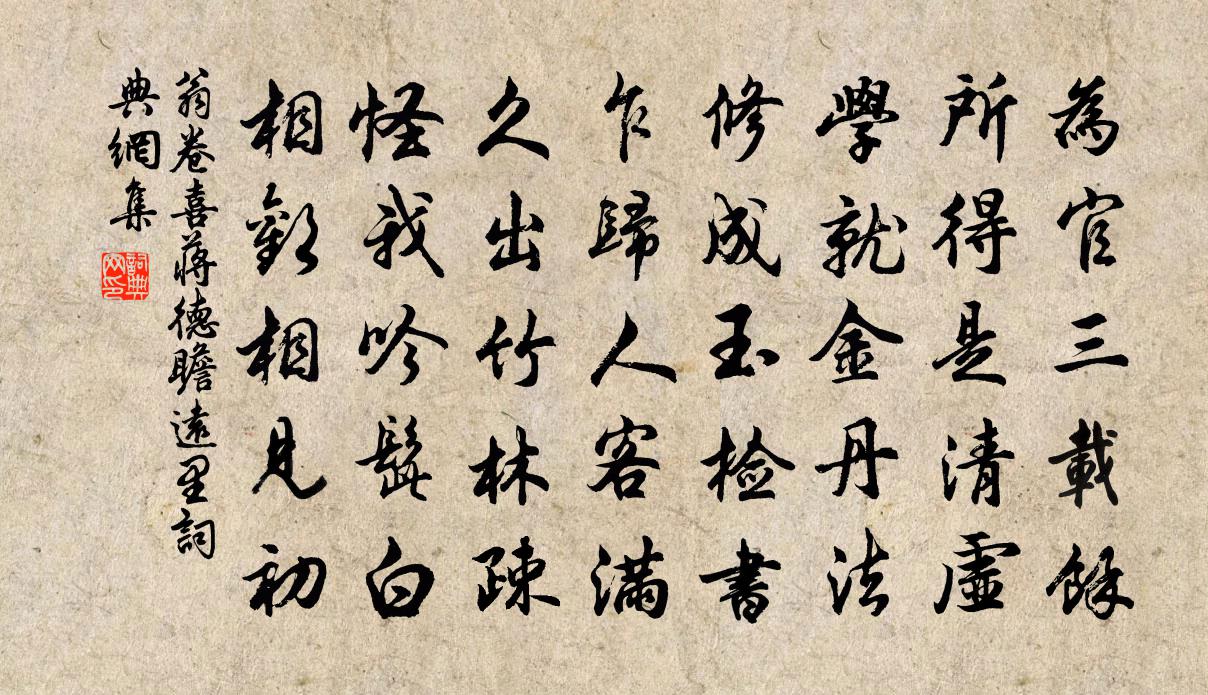 為官三載餘
所得是清虛
學就金丹法
修成玉檢書
乍歸人客滿
久出竹林疎
怪我吟髭白
相歡相見初
翁卷喜蔣德瞻遠里詞
典網集
詞典
网印